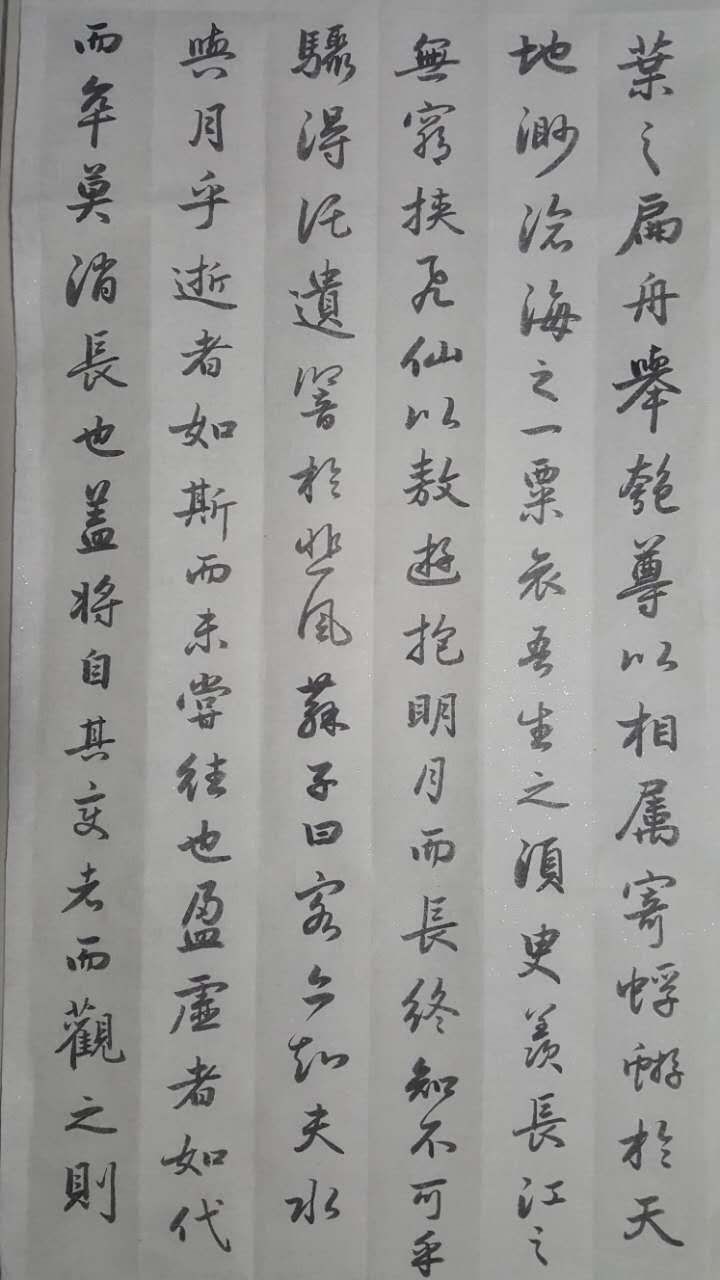 葉之扁舟舉匏尊以相属寄蜉蝣於天
地渺滄海之一粟哀吾生之須臾羨長江之
無窮挟飛仙以敖遊抱明月而長終知不可乎
驟得託遺響於悲風蘇子曰客亦知夫水
與月乎逝者如斯而未嘗往也盈虛者如代
而卒莫消長也盖將自其变者而觀之則